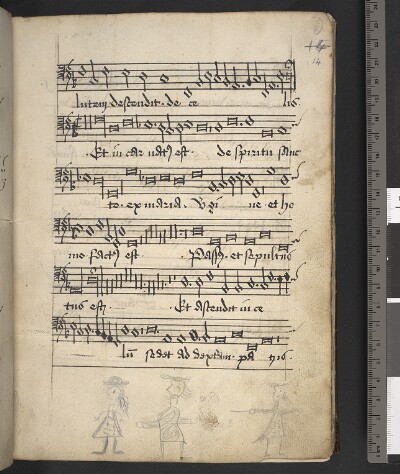 14
lutem descendit de ce lis
Et in car nat9 est de spiritu sanc
to ex maria v gi ne et ho
mo fact9 est Pass9 et sepultus
tus est Et ascendit in ce
lu sedet ad dexteram pa tris